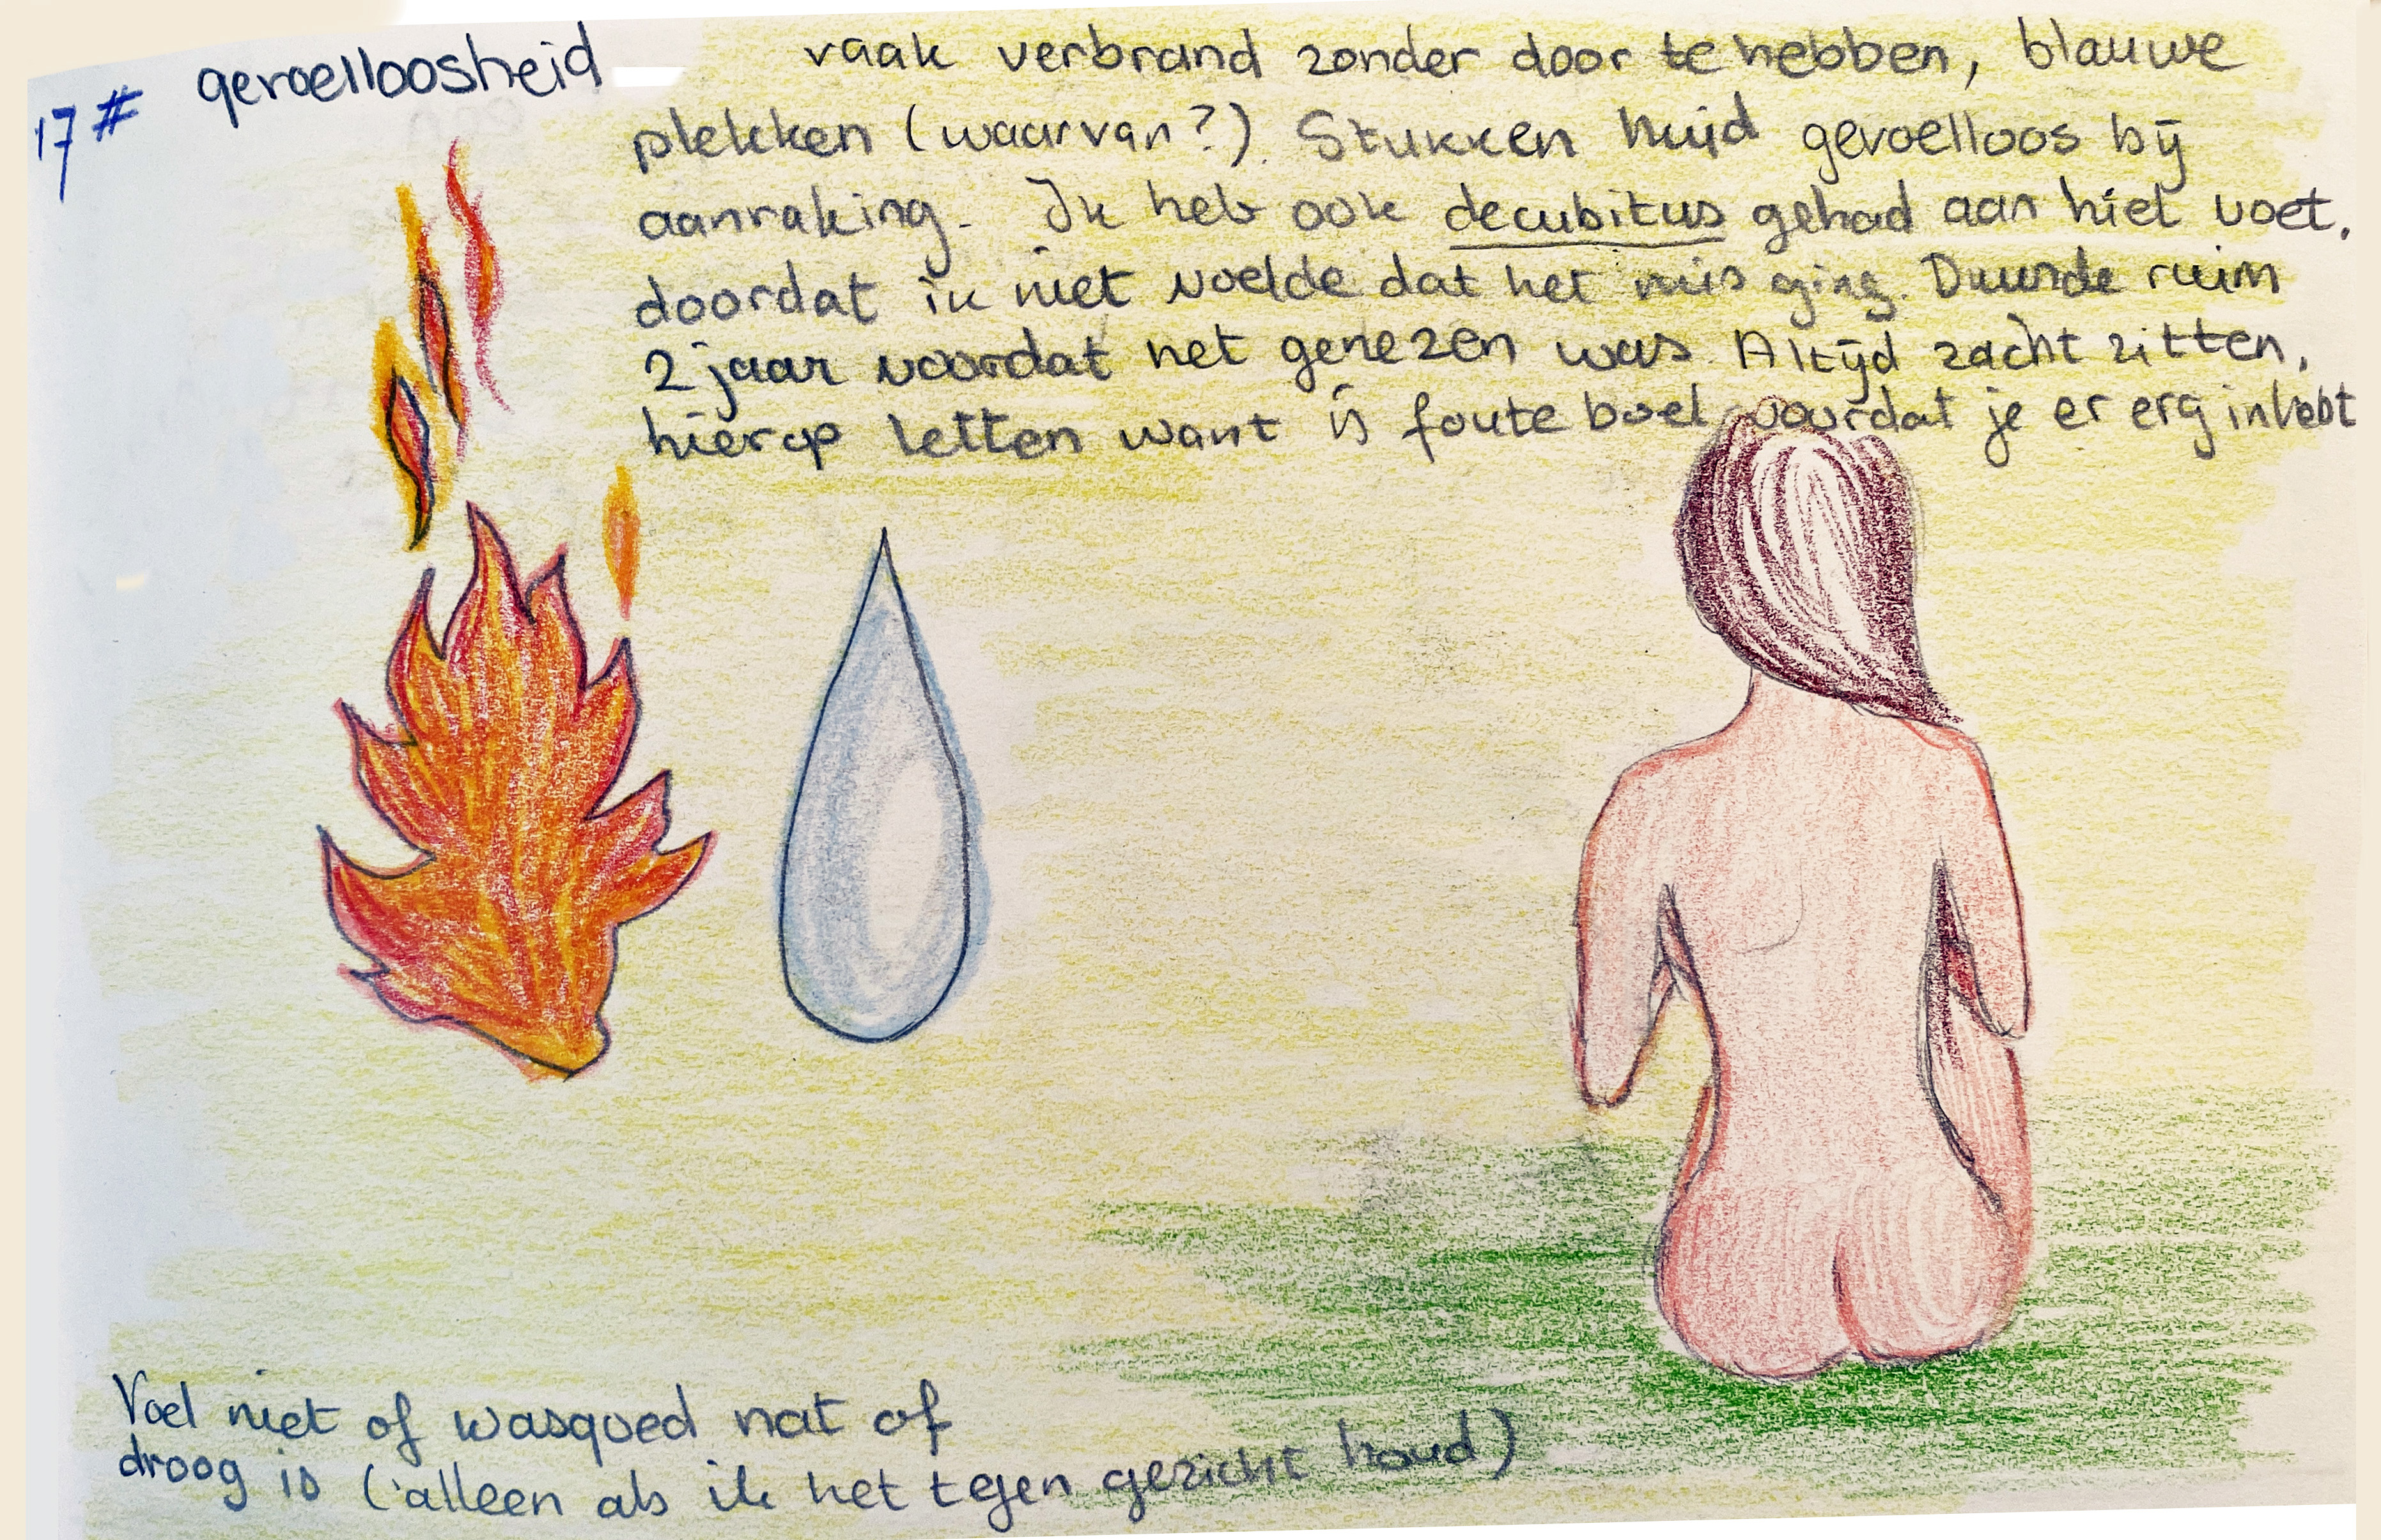 17# gevoelloosheid
vaak verbrand zonder door te hebben, blauwe
plekken (waarvan?). Stukken huid gevoelloos bij
aanraking. Ik heb ook decubitus gehad aan hiel voet,
doordat ik niet voelde dat het mis ging. Duurde ruim
2 jaar voordat het genezen was. Altijd zacht zitten,
hierop letten want is foute boel voordat je er erg in hebt
Voel niet of wasgoed nat of
droog is (alleen als ik het tegen gezicht houd)